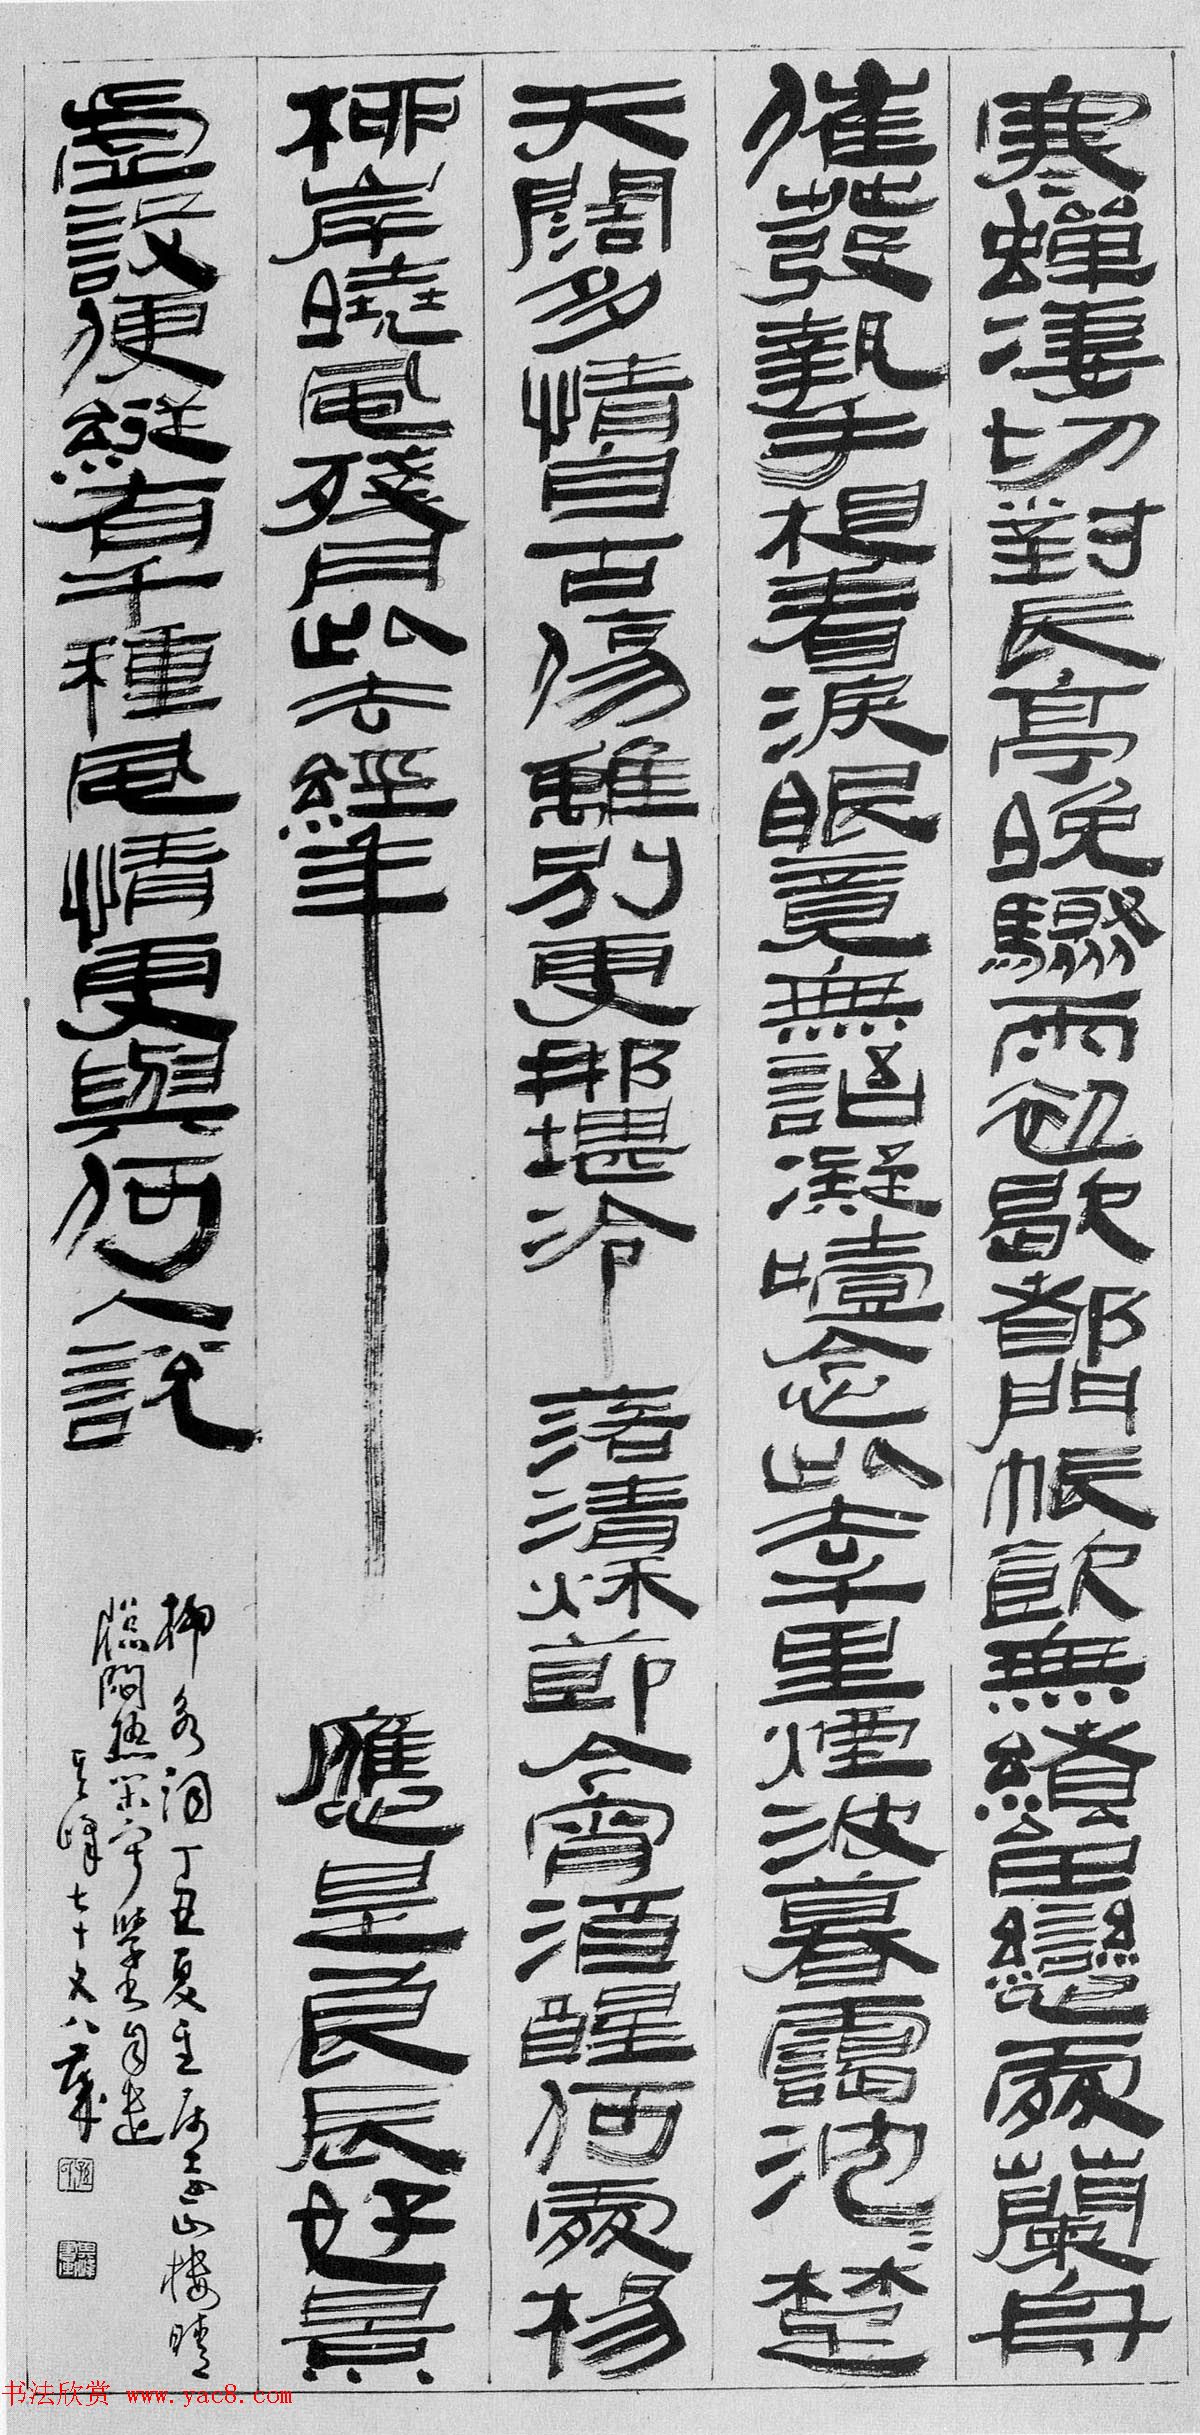 寒蟬淒切對長亭晚驟雨初歇都門帳飲無緒留戀處蘭舟
催發執手相看淚眼竟無語凝噎念此去千里煙波暮靄沈〻楚
天闊多情自古傷離別更那堪冷落清秋節今宵酒醒何處楊
柳岸曉風殘月此去經年應是良辰好景
虛設便縱有千種風情更與何人說
柳永詞丁丑夏至山樓晴
熱學書自遣
其峰七十又八歲
书法欣赏 www.yac8.com